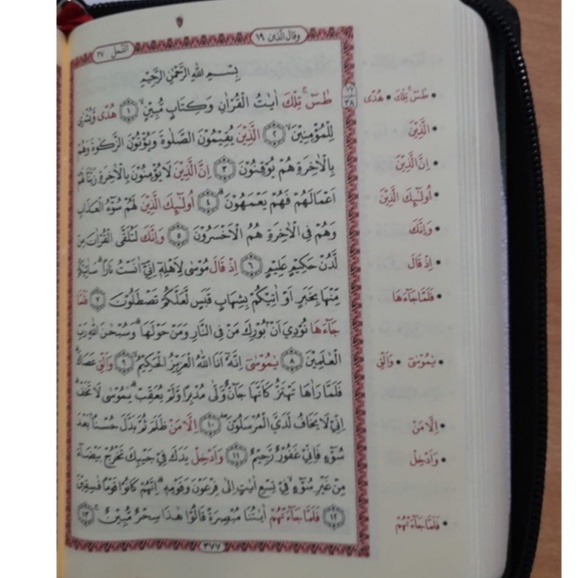 وقال الذين ١٩
النمل ٢٧
بِسْمِ اللّٰهِ الرَّحْمٰنِ الرَّحِيْمِ
طٰسٓ ۚ تِلْكَ اٰيٰتُ الْقُرْاٰنِ وَكِتَابٍ مُّبِيْنٍ ۙ ﴿١﴾ هُدًى وَّبُشْرٰى
لِلْمُؤْمِنِيْنَ ۙ ﴿٢﴾ الَّذِيْنَ يُقِيْمُوْنَ الصَّلٰوةَ وَيُؤْتُوْنَ الزَّكٰوةَ وَهُمْ
بِالْاٰخِرَةِ هُمْ يُوْقِنُوْنَ ﴿٣﴾ اِنَّ الَّذِيْنَ لَا يُؤْمِنُوْنَ بِالْاٰخِرَةِ زَيَّنَّا لَهُمْ
اَعْمَالَهُمْ فَهُمْ يَعْمَهُوْنَ ۗ ﴿٤﴾ اُولٰٓئِكَ الَّذِيْنَ لَهُمْ سُوْٓءُ الْعَذَابِ
وَهُمْ فِى الْاٰخِرَةِ هُمُ الْاَخْسَرُوْنَ ﴿٥﴾ وَاِنَّكَ لَتُلَقَّى الْقُرْاٰنَ مِنْ
لَّدُنْ حَكِيْمٍ عَلِيْمٍ ﴿٦﴾ اِذْ قَالَ مُوْسٰى لِاَهْلِهٖٓ اِنِّيْٓ اٰنَسْتُ نَارًا ۗ سَاٰتِيْكُمْ
مِّنْهَا بِخَبَرٍ اَوْ اٰتِيْكُمْ بِشِهَابٍ قَبَسٍ لَّعَلَّكُمْ تَصْطَلُوْنَ ﴿٧﴾ فَلَمَّا
جَآءَهَا نُوْدِيَ اَنْۢ بُوْرِكَ مَنْ فِى النَّارِ وَمَنْ حَوْلَهَا ۗ وَسُبْحٰنَ اللّٰهِ رَبِّ
الْعٰلَمِيْنَ ﴿٨﴾ يٰمُوْسٰٓى اِنَّهٗٓ اَنَا اللّٰهُ الْعَزِيْزُ الْحَكِيْمُ ۙ ﴿٩﴾ وَاَلْقِ عَصَاكَ ۗ
فَلَمَّا رَاٰهَا تَهْتَزُّ كَاَنَّهَا جَآنٌّ وَّلّٰى مُدْبِرًا وَّلَمْ يُعَقِّبْ ۗ يٰمُوْسٰى لَا تَخَفْ ۗ
اِنِّيْ لَا يَخَافُ لَدَيَّ الْمُرْسَلُوْنَ ۖ ﴿١٠﴾ اِلَّا مَنْ ظَلَمَ ثُمَّ بَدَّلَ حُسْنًاۢ بَعْدَ
سُوْٓءٍ فَاِنِّيْ غَفُوْرٌ رَّحِيْمٌ ﴿١١﴾ وَاَدْخِلْ يَدَكَ فِيْ جَيْبِكَ تَخْرُجْ بَيْضَآءَ
مِنْ غَيْرِ سُوْٓءٍ ۙ فِيْ تِسْعِ اٰيٰتٍ اِلٰى فِرْعَوْنَ وَقَوْمِهٖ ۗ اِنَّهُمْ كَانُوْا قَوْمًا فٰسِقِيْنَ
﴿١٢﴾ فَلَمَّا جَآءَتْهُمْ اٰيٰتُنَا مُبْصِرَةً قَالُوْا هٰذَا سِحْرٌ مُّبِيْنٌ ۚ ﴿١٣﴾
٣٧٧
• طٰسٓ ۚ تِلْكَ • هُدًى
• الَّذِيْنَ
• اِنَّ الَّذِيْنَ
• اُولٰٓئِكَ الَّذِيْنَ
• وَاِنَّكَ
• اِذْ قَالَ
• فَلَمَّا جَآءَهَا
• يٰمُوْسٰٓى • وَاَلْقِ
• اِلَّا مَنْ
• وَاَدْخِلْ
• فَلَمَّا جَآءَتْهُمْ